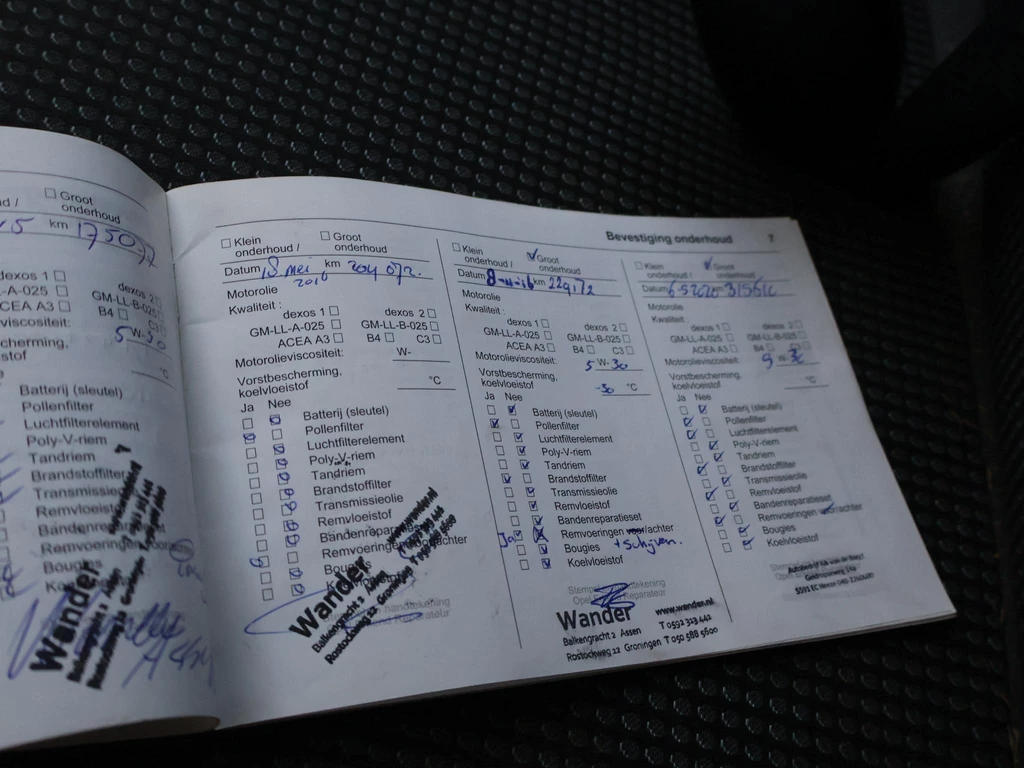 ☐ Groot
onderhoud
km 175077
dexos 1 ☐
dexos 2 ☐
GM-LL-B-025 ☐
ACEA A3 ☐ B4 ☐ C3 ☐
5 W-30
°C
Batterij (sleutel)
Pollenfilter
Luchtfilterelement
Poly-V-riem
Tandriem
Brandstoffilter
Transmissieolie
Remvloeistof
Bandenreparatieset
Remvoeringen
Wander
Bevestiging onderhoud 7
☐ Klein onderhoud / ☐ Groot onderhoud
Datum 18 mei 2016 km 204 072.
Motorolie
Kwaliteit :
dexos 1 ☐ dexos 2 ☐
GM-LL-A-025 ☐ GM-LL-B-025 ☐
ACEA A3 ☐ B4 ☐ C3 ☐
Motorolieviscositeit: W-
Vorstbescherming,
koelvloeistof °C
Ja Nee
Batterij (sleutel)
Pollenfilter
Luchtfilterelement
Poly-V-riem
Tandriem
Brandstoffilter
Transmissieolie
Remvloeistof
Wander
Balkengracht 2 Assen
Rostockweg 12 Groningen T 050 588 5600
☐ Klein onderhoud / ☑ Groot onderhoud
Datum km 229172
Motorolie
Kwaliteit:
dexos 1 ☐ dexos 2 ☐
GM-LL-A-025 ☐ GM-LL-B-025 ☐
ACEA A3 ☐ B4 ☐ C3 ☐
Motorolieviscositeit: 5 W-30
Vorstbescherming,
koelvloeistof -30 °C
Ja Nee
Batterij (sleutel)
Pollenfilter
Luchtfilterelement
Poly-V-riem
Tandriem
Brandstoffilter
Transmissieolie
Remvloeistof
Bandenreparatieset
Ja Remvoeringen voor/achter
Bougies + schijven.
Koelvloeistof
Wander www.wander.nl
Balkengracht 2 Assen T 0592 313 442
Rostockweg 12 Groningen T 050 588 5600
☐ Klein onderhoud / ☑ Groot onderhoud
Datum 6-5-2020
Motorolie
Kwaliteit:
dexos 1 ☐ dexos 2 ☐
GM-LL-A-025 ☐ GM-LL-B-025 ☐
ACEA A3 ☐ B4 ☐ C3 ☐
Motorolieviscositeit: W-30
Vorstbescherming,
koelvloeistof °C
Ja Nee
Batterij (sleutel)
Pollenfilter
Luchtfilterelement
Poly-V-riem
Tandriem
Brandstoffilter
Transmissieolie
Remvloeistof
Bandenreparatieset
Remvoeringen voor/achter
Bougies
Koelvloeistof